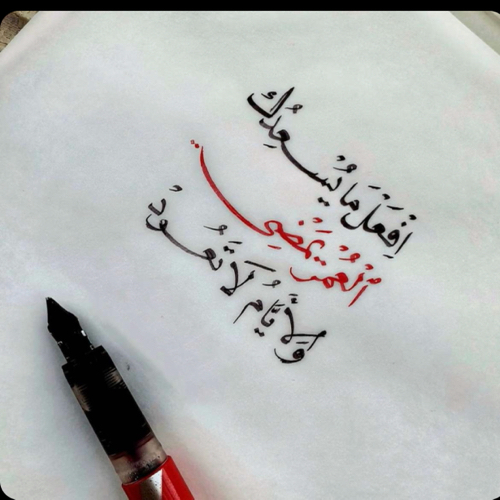 اِفْعَلْ مَا يُسْعِدُكَ
اَلْعُمْرُ يَمْضِي
وَالأَيَّامُ لَا تَعُودُ